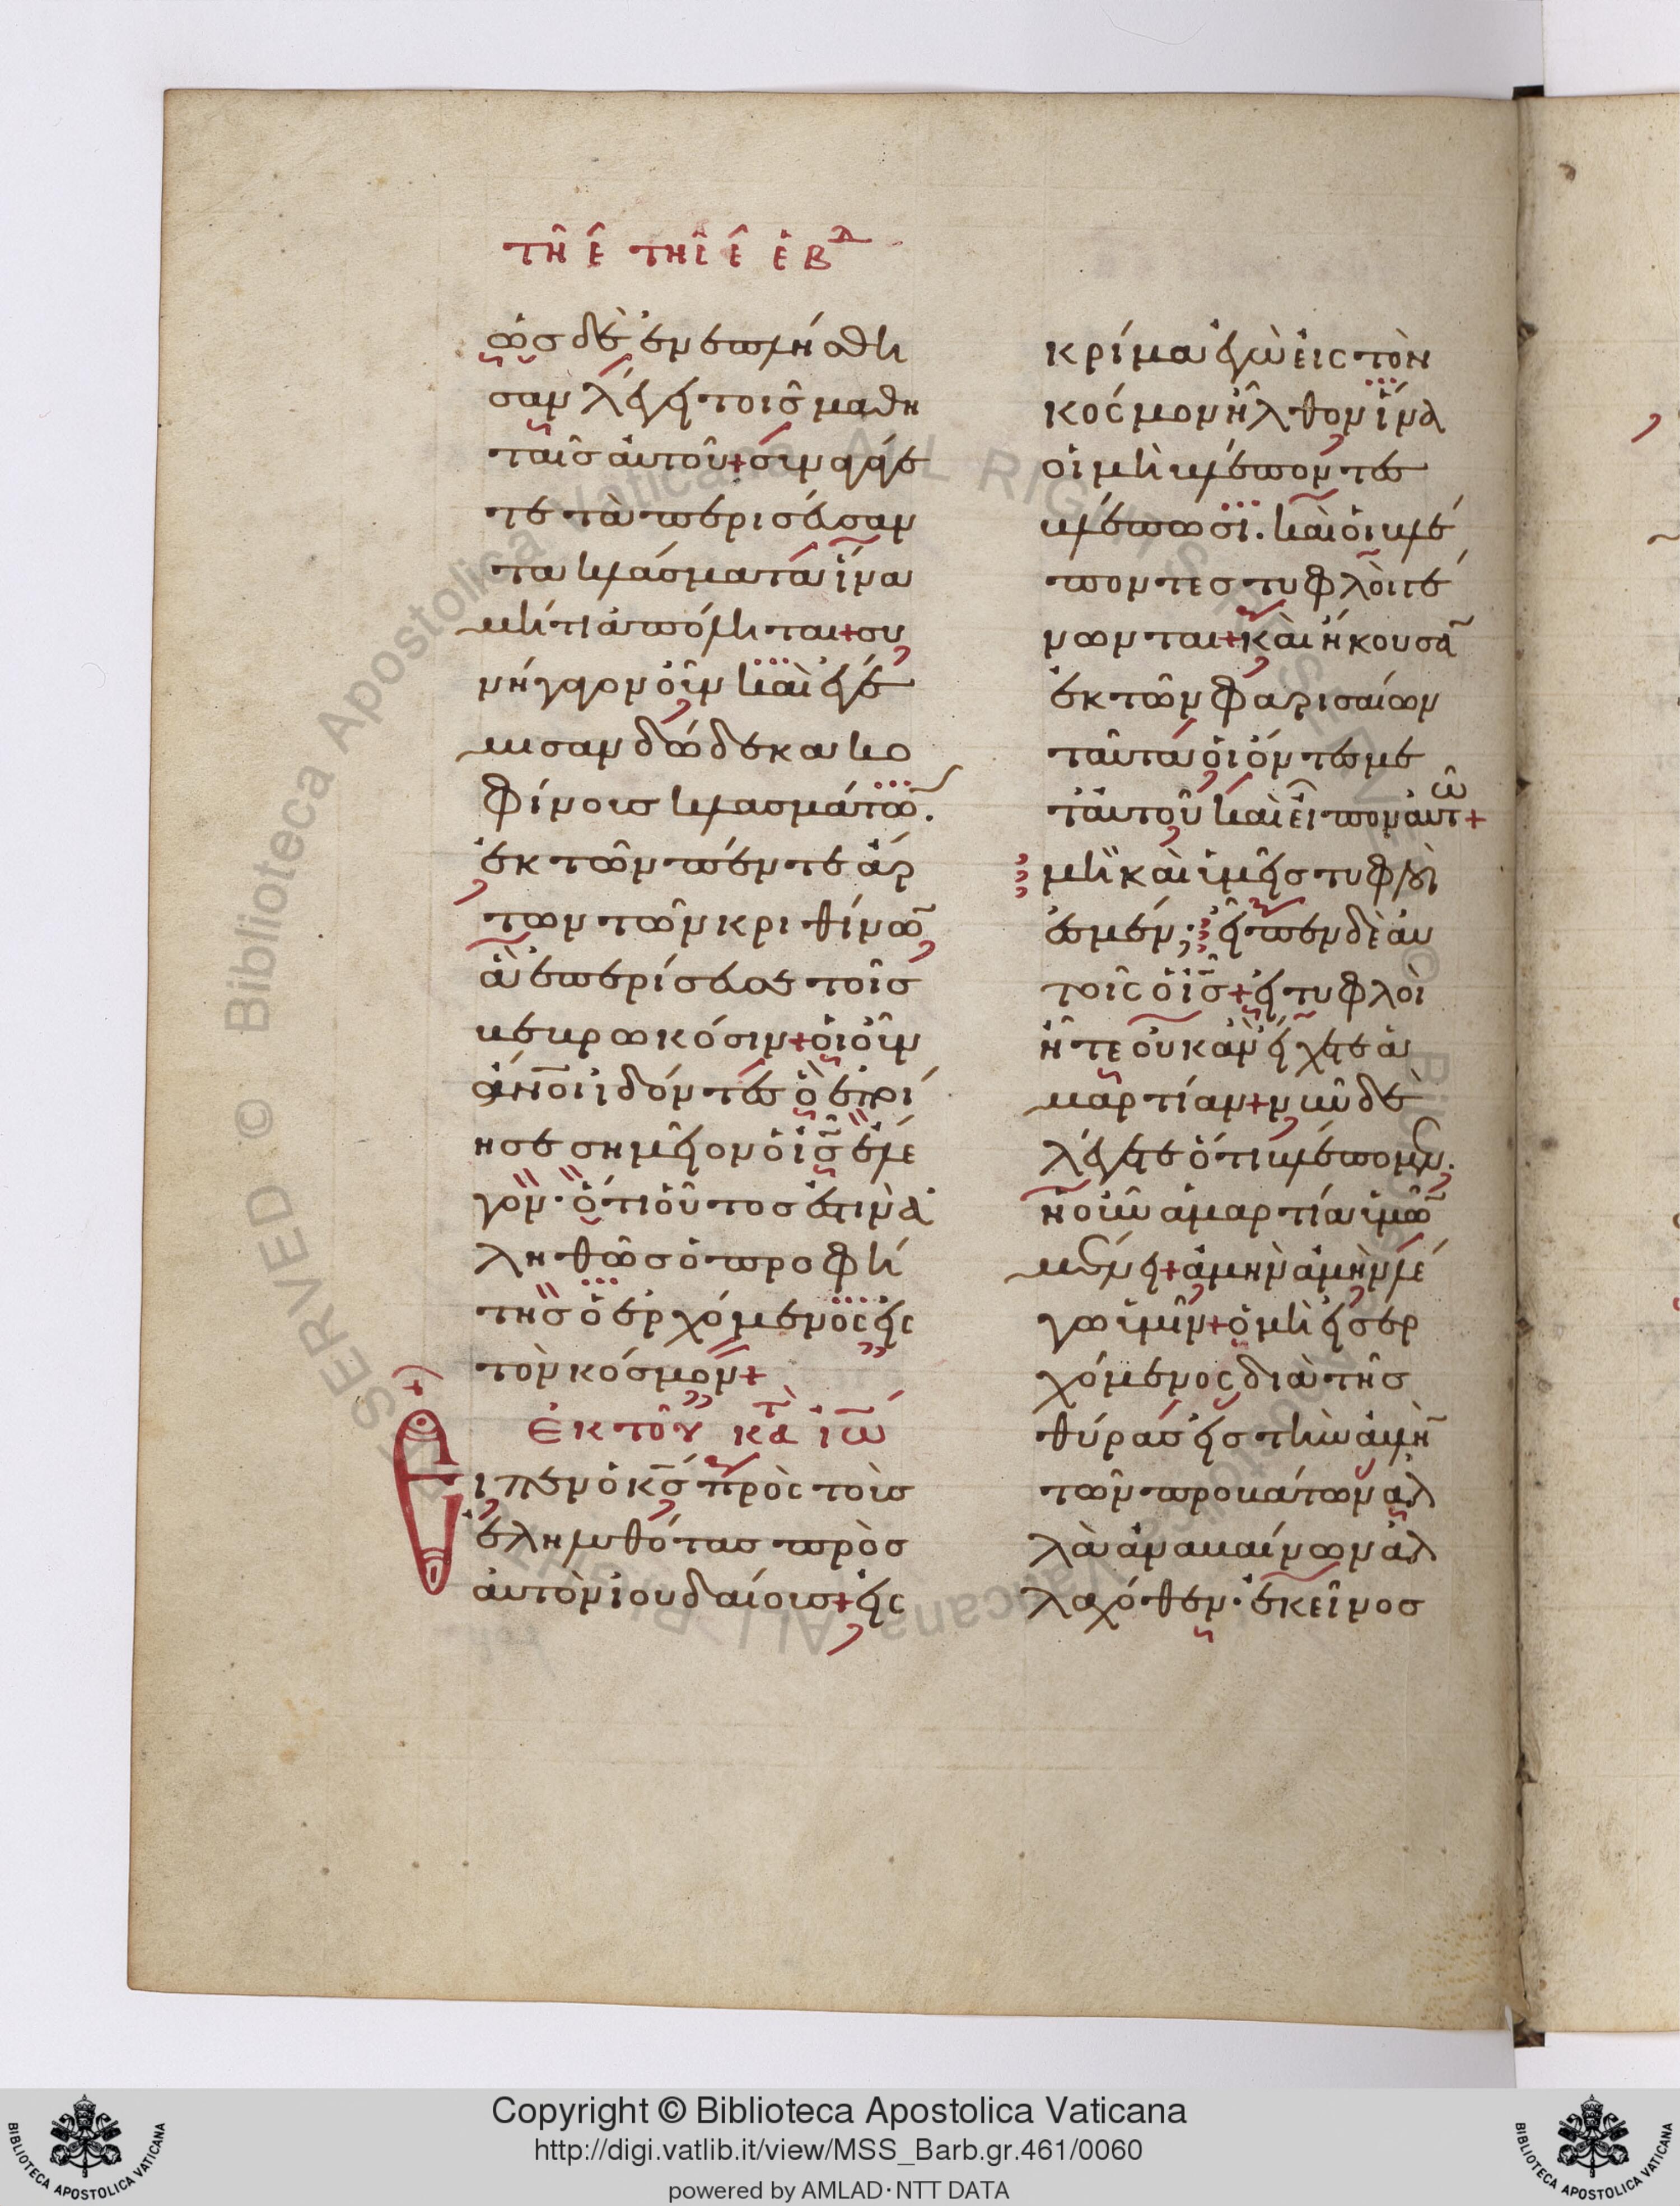 τῆ ε̂ τῆς ε̂ ἑβδ
ὡς δὲ ἐνεπλήσθη
σαν λέγει τοῖς μαθη
ταῖς αὐτοῦ + συναγάγε
τε τὰ περισσεύσαν
τα κλάσματα ἵνα
μή τι ἀπόληται + συ
νήγαγον οὖν καὶ ἐγέ
μισαν δώδεκα κο
φίνους κλασμάτω̅.
ἐκ τῶν πέντε ἄρ
των τῶν κριθίνω̅
ἃ ἐπερίσσευσε τοῖς
βεβρωκόσιν + οἱ οὖν
ἄν̅οι ἰδόντες ὃ ἐποί
ησε σημεῖον ὁ ι̅ς̅ ἔλε
γον · ὅτι οὗτός ἐστιν ἀ
ληθῶς ὁ προφή
της ὁ ἐρχόμενος εἰς
τὸν κόσμον +
Ἐκ τοῦ κατὰ ἰω̅
Εἶπεν ὁ κ̅ς̅ πρὸς τοὺς
ἐληλυθότας πρὸς
αὐτὸν ἰουδαίους + εἰς
κρίμα ἐγὼ εἰς τὸν
κόσμον ἦλθον ἵνα
οἱ μὴ βλέποντες
βλέπωσι. καὶ οἱ βλέ
ποντες τυφλοὶ γέ
νωνται + καὶ ἤκουσα̅
ἐκ τῶν φαρισαίων
ταῦτα οἱ ὄντες με
τ' αὐτοῦ καὶ εἶπον αὐτῶ +
μὴ καὶ ἡμεῖς τυφλοί
ἐσμεν; εἶπεν δὲ αὐ
τοῖς ὁ ι̅ς̅ + εἰ τυφλοὶ
ἦτε οὐκ ἂν εἴχετε ἁ
μαρτίαν + νῦν δὲ
λέγετε ὅτι βλέπομεν.
ἡ οὖν ἁμαρτία ὑμῶ̅
μένει + ἀμὴν ἀμὴν λέ
γω ὑμῖν + ὁ μὴ εἰσερ
χόμενος διὰ τῆς
θύρας εἰς τὴν αὐλὴ̅
τῶν προβάτων ἀλ
λὰ ἀναβαίνων ἀλ
λαχόθεν · ἐκεῖνος
Copyright © Biblioteca Apostolica Vaticana
http://digi.vatlib.it/view/MSS_Barb.gr.461/0060
powered by AMLAD·NTT DATA
BIBLIOTECA APOSTOLICA VATICANA
BIBLIOTECA APOSTOLICA VATICANA